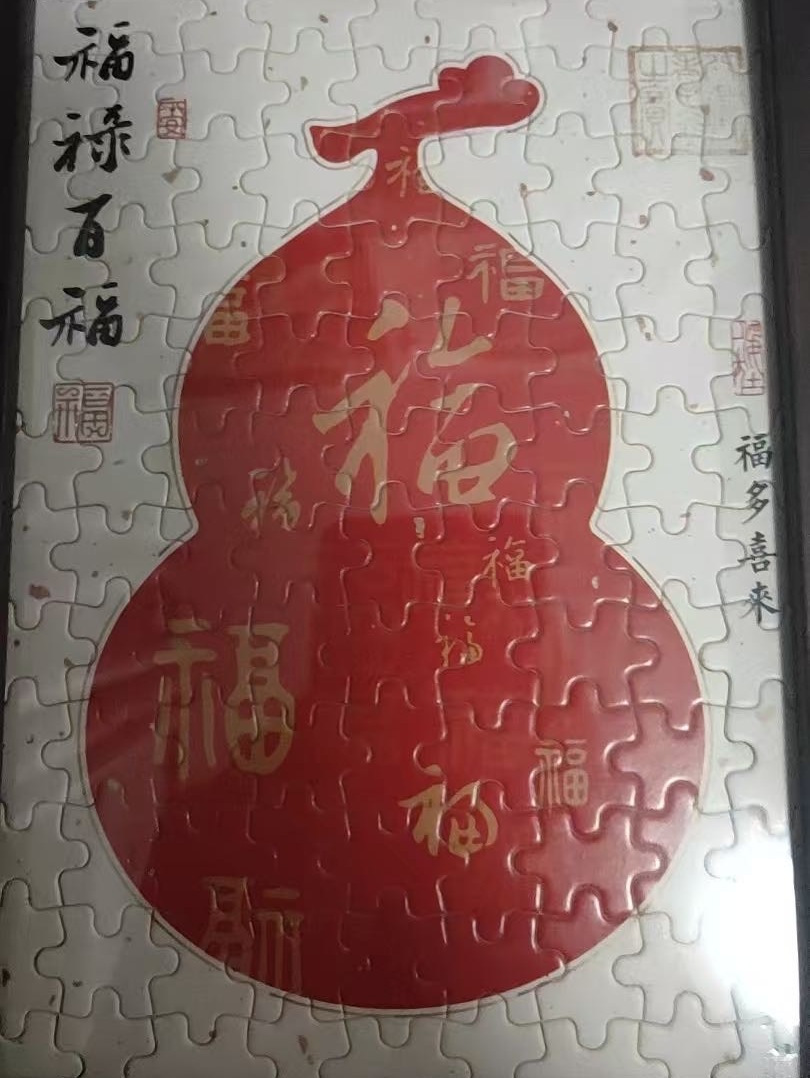 福禄百福
福
福多喜來
福
福
福
福
福
福
福
福
福
福